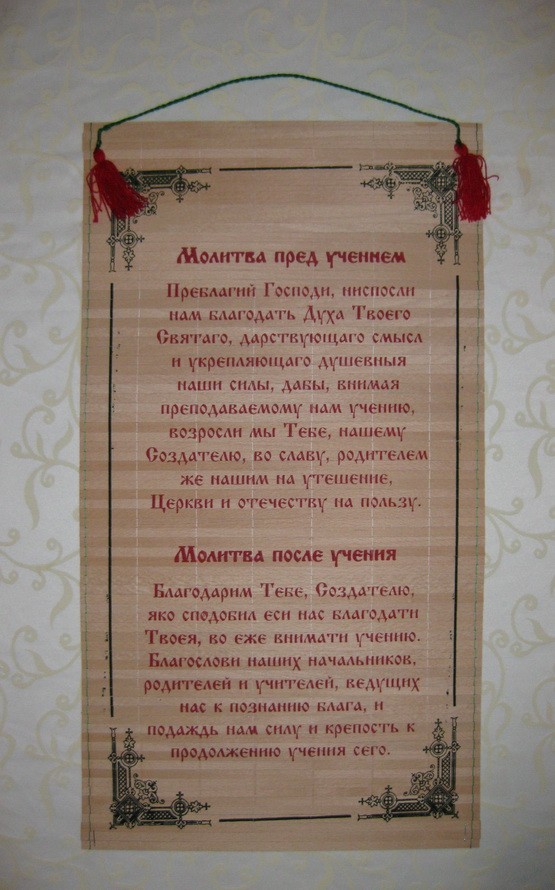 Молитва пред учением
Преблагий Господи, ниспосли
нам благодать Духа Твоего
Святаго, дарствующаго смысл
и укрепляющаго душевныя
наши силы, дабы, внимая
преподаваемому нам учению,
возросли мы Тебе, нашему
Создателю, во славу, родителем
же нашим на утешение,
Церкви и отечеству на пользу.
Молитва после учения
Благодарим Тебе, Создателю,
яко сподобил еси нас благодати
Твоея, во еже внимати учению.
Благослови наших начальников,
родителей и учителей, ведущих
нас к познанию блага, и
подаждь нам силу и крепость к
продолжению учения сего.